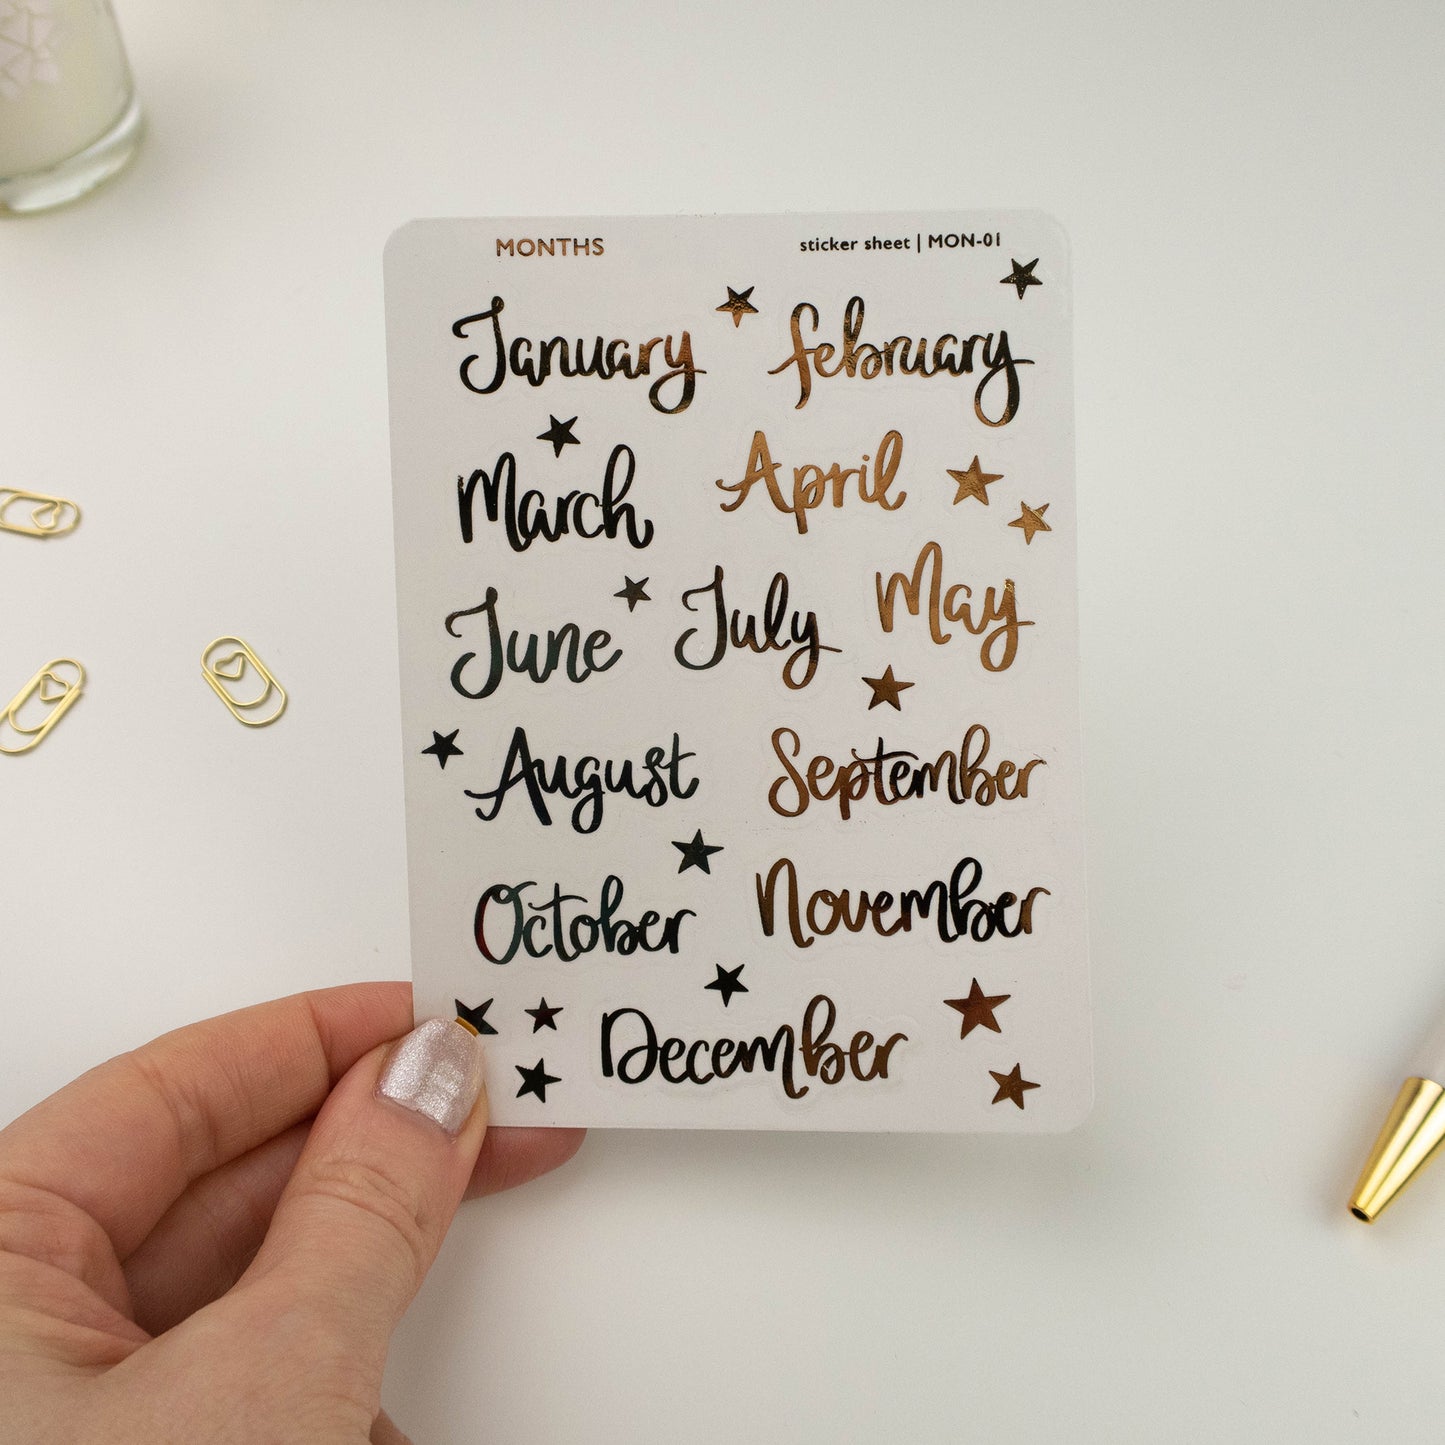 MONTHS sticker sheet | MON-01
January february
March April
June July May
August September
October November
December